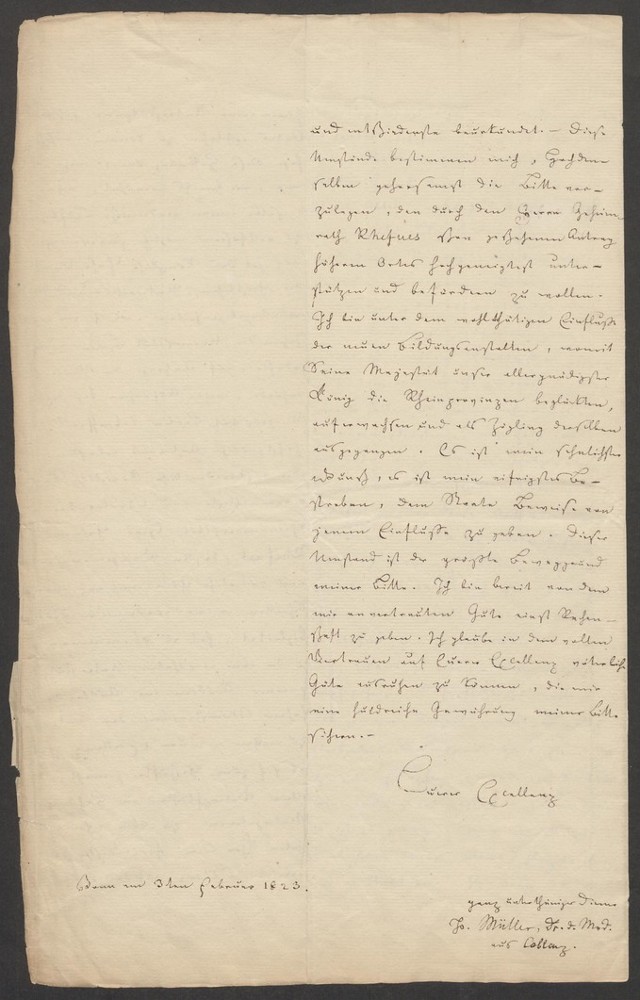 und entschiedenste beurkundet. – Diese
Umstände bestimmen mich, Hochden-
selben gehorsamst die Bitte vor-
zulegen, den durch den Herrn Geheim-
rath Rhefues geschehenen Antrag
höhern Ortes hochgeneigtest unter-
stützen und befördern zu wollen.
Ich bin unter dem wohlthätigen Einfluße
der neuen Bildungsanstalten, womit
Seine Majestät unser allergnädigster
König die Rheinprovinzen beglückten,
auferwachsen und als Zögling derselben
ausgegangen. Es ist mein sehnlichster
Wunsch, es ist mein eifrigstes Be-
streben, dem Staate Beweise von
jenem Einflusse zu geben. Dieser
Umstand ist der größte Beweggrund
meiner Bitte. Ich bin bereit von dem
mir anvertrauten Gute einst Rechen-
schaft zu geben. Ich glaube in dem vollen
Vertrauen auf Euerer Excellenz väterliche
Güte ausruhen zu können, die mir
eine huldreiche Gewährung meiner Bitte
sichern. –
Euerer Excellenz
Bonn am 3ten Februar 1823.
ganz unterthäniger Diener
Jo. Müller, Dr. d. Med.
aus Coblenz.